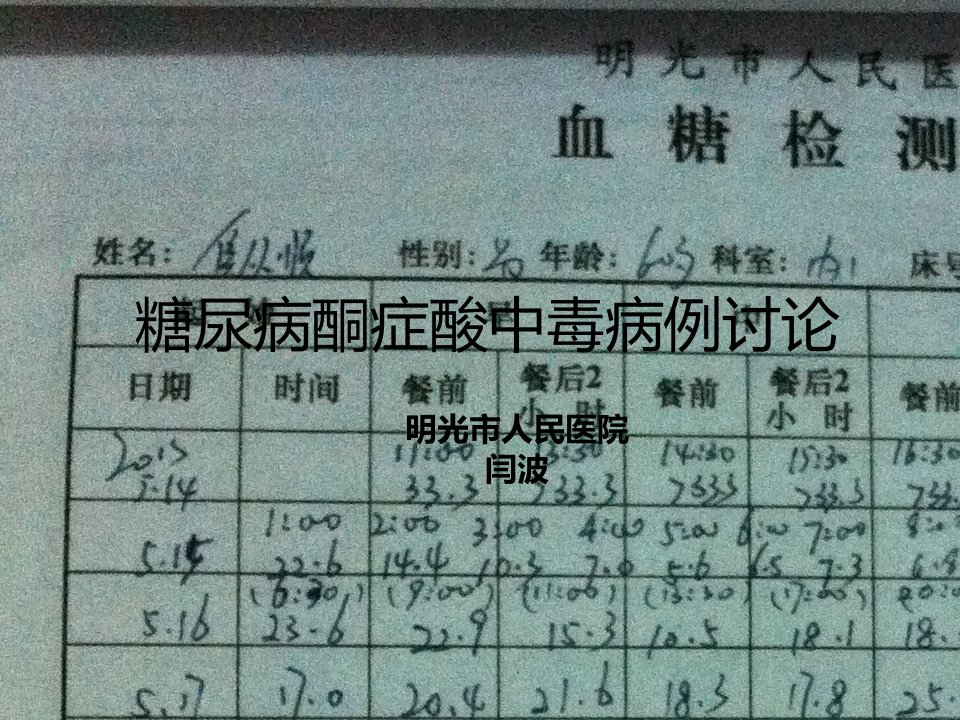 明光市人民医
血糖检测
姓名： 性别：男 年龄： 科室：内 床号
糖尿病酮症酸中毒病例讨论
日期 时间 餐前 餐后2小时 餐前 餐后2小时 餐前
明光市人民医院
闫波
2015 11:00 14:30 15:30 16:30
5.14 33.3 >33.3 >333 >33.3 >33
1:00 2:00 3:00 4:00 5:00 6:00 7:00
5.15 22.6 14.4 10.3 7.0 5.6 6.5 7.3 6.9
(6:30) (9:00) (11:00) (13:30) (17:00)
5.16 23.6 22.9 15.3 10.5 18.1 18.
5.17 17.0 20.4 21.6 18.3 17.8 25.